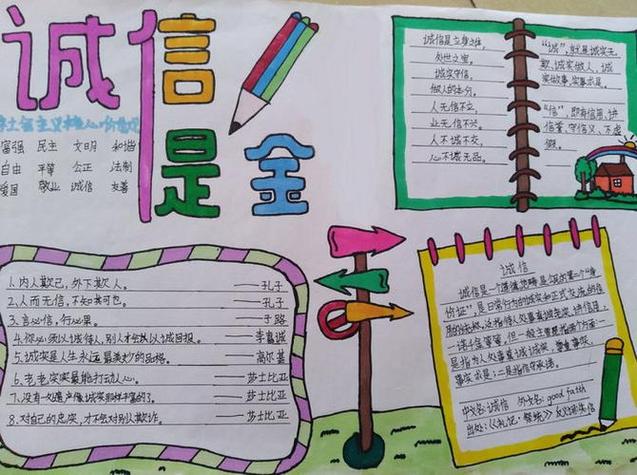 诚信
是金
社会主义核心价值观
富强 民主 文明 和谐
自由 平等 公正 法制
爱国 敬业 诚信 友善
诚信是立身之道，
处世之宝，
诚实守信，
做人的本分。
人无信不立，
业无信不兴。
人不诚不交，
心不诚无品。
"诚"，就是诚实无
欺，诚实做人，诚
实做事，实事求是。
"信"，即有信用、讲
信誉，守信义，不虚
假。
1.内人欺己，外下欺人。——孔子
2.人而无信，不知其可也。——孔子
3.言必信，行必果。——子路
4.你必须以诚待人，别人才会以诚回报。——李嘉诚
5.诚实是人生永远最美妙的品格。——高尔基
6.老老实实最能打动人心。——莎士比亚
7.没有一处遗产像诚实那样丰富的了。——莎士比亚
8.对自己的忠实，才不会对别人欺诈。——莎士比亚
诚信
诚信是一个道德范畴是公民的第二个"身
份证"，是日常行为的诚实和正式交流的信
用的统称。泛指待人处事真诚、老实、讲信誉，
一诺千金等等，但一般主要是指两个方面一
是指为人处事真诚诚实，尊重事实，
事实求是；二是指信守承诺。
中文名：诚信 外文名：good faith
出处：《礼记·祭统》 反义词：失信